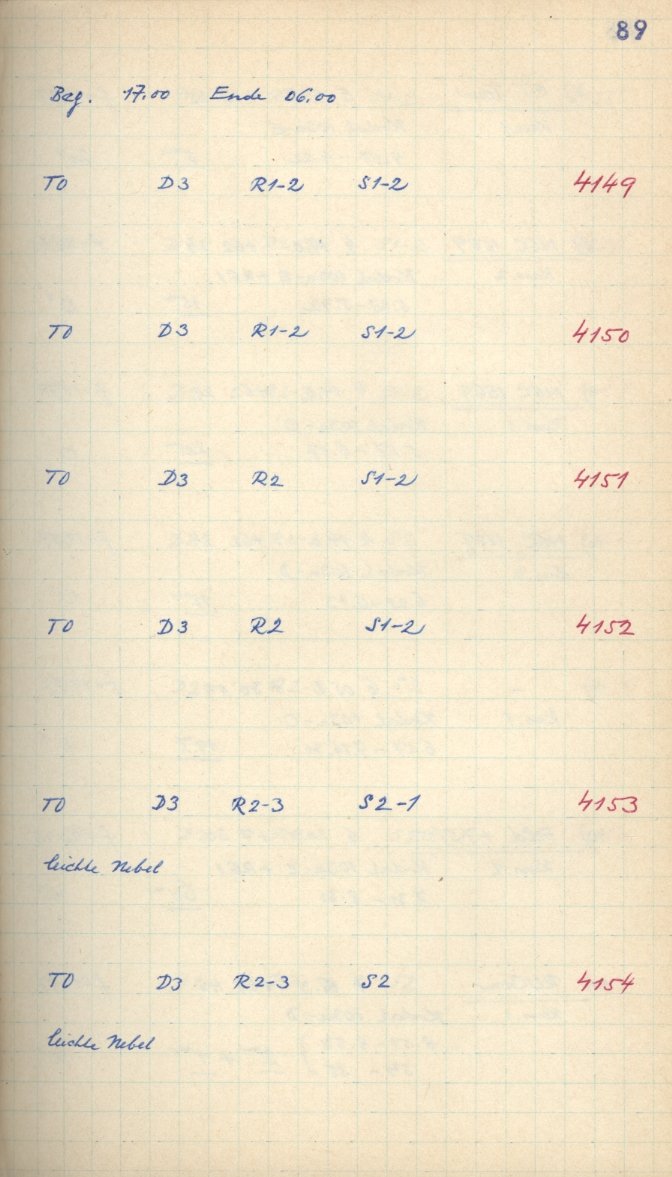 89
Beg. 17.00 Ende 06.00
T0 D3 R1-2 S1-2 4149
T0 D3 R1-2 S1-2 4150
T0 D3 R2 S1-2 4151
T0 D3 R2 S1-2 4152
T0 D3 R2-3 S2-1 4153
leichte Nebel
T0 D3 R2-3 S2 4154
leichte Nebel